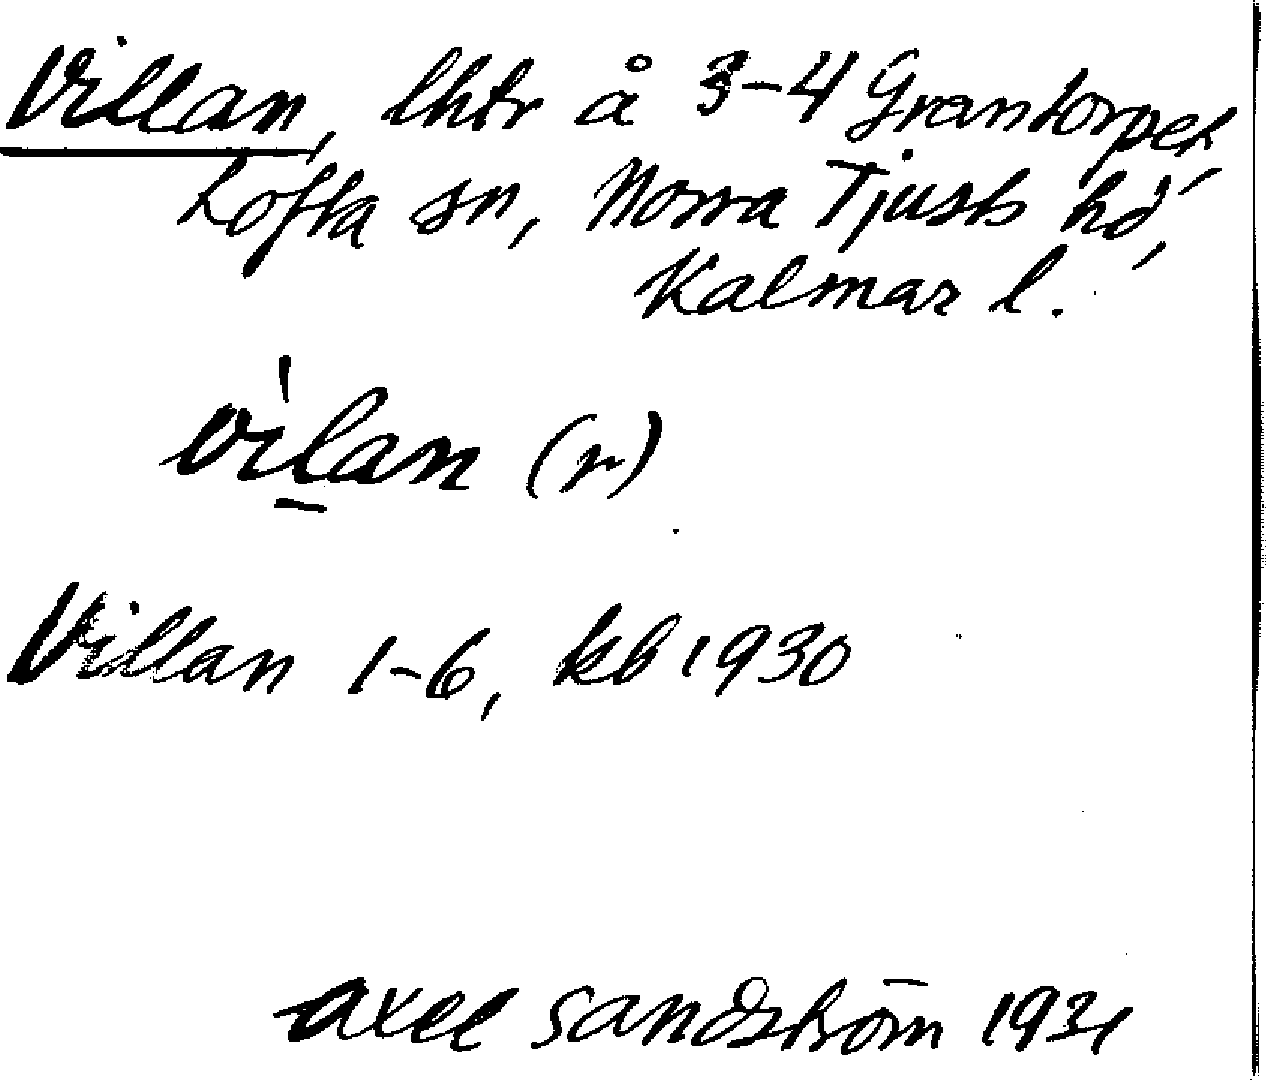 Villan, lhtr å 3-4 Grantorpet,
Lofta sn, Norra Tjusts hd,
Kalmar l.
vìlan (r)
Villan 1-6, kb 1930
Axel Sandström 1931